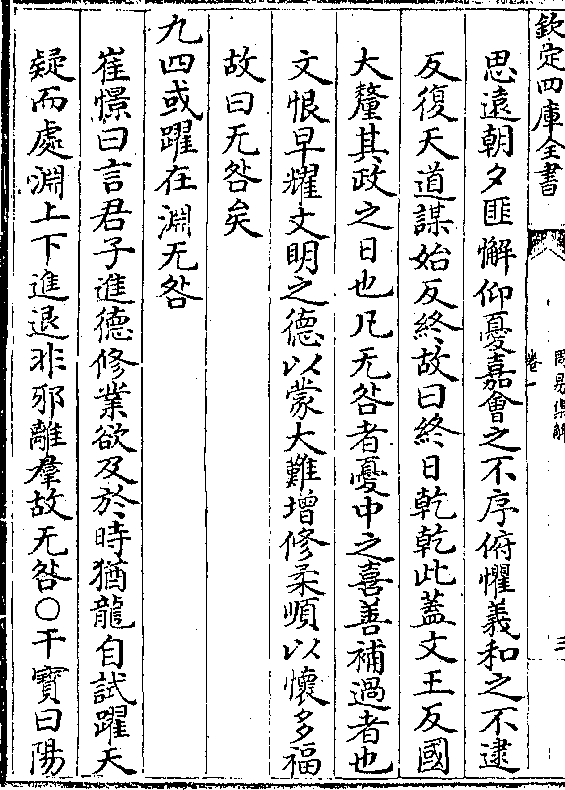 欽定四庫全書
周易集解
卷一
三
思遠朝夕匪懈仰憂嘉會之不序俯懼義和之不逮
反復天道謀始反終故曰終日乾乾此蓋文王反國
大釐其政之日也凡无咎者憂中之喜善補過者也
文恨早耀文明之德以蒙大難增修柔順以懷多福
故曰无咎矣
九四或躍在淵无咎
崔憬曰言君子進德修業欲及於時猶龍自試躍天
疑而處淵上下進退非邪離羣故无咎○干寶曰陽